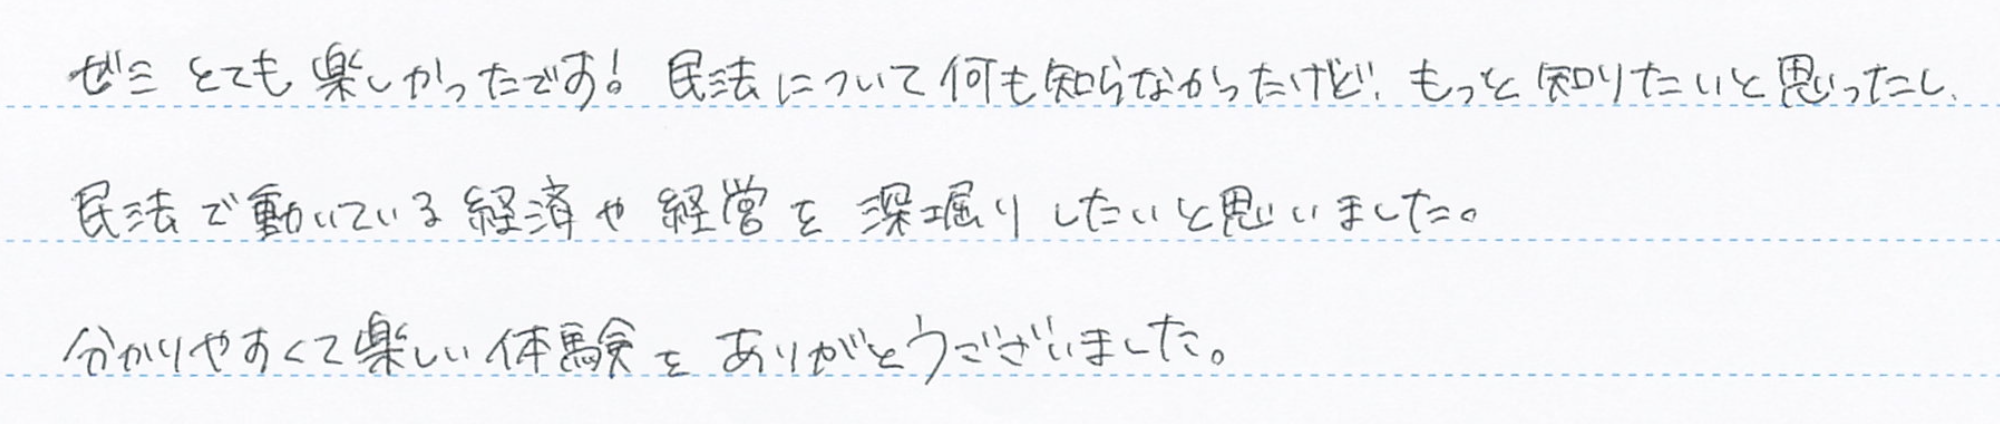 ゼミとても楽しかったです! 民法について何も知らなかったけど、もっと知りたいと思ったし、
民法で動いている経済や経営を深堀りしたいと思いました。
分かりやすくて楽しい体験をありがとうございました。